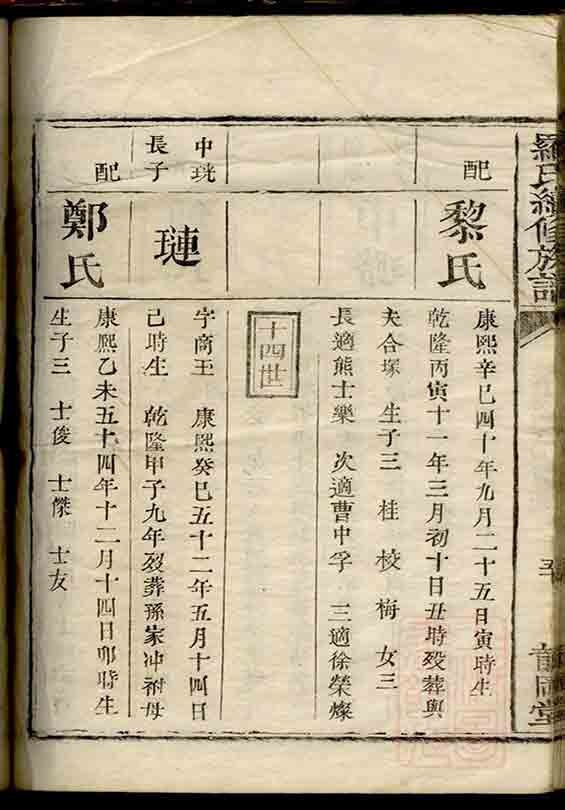 羅氏續修族譜
五
配
黎氏
康熙辛巳四十年九月二十五日寅時生
乾隆丙寅十一年三月初十日丑時歿葬與
夫合塚 生子三 桂 校 梅 女三
長適熊士樂 次適曹中孚 三適徐榮燦
十四世
中珖
長子
璉
字商玉 康熙癸巳五十二年五月十四日
己時生 乾隆甲子九年歿葬孫家冲祔母
配
鄭氏
康熙乙未五十四年十二月十四日卯時生
生子三 士俊 士傑 士友